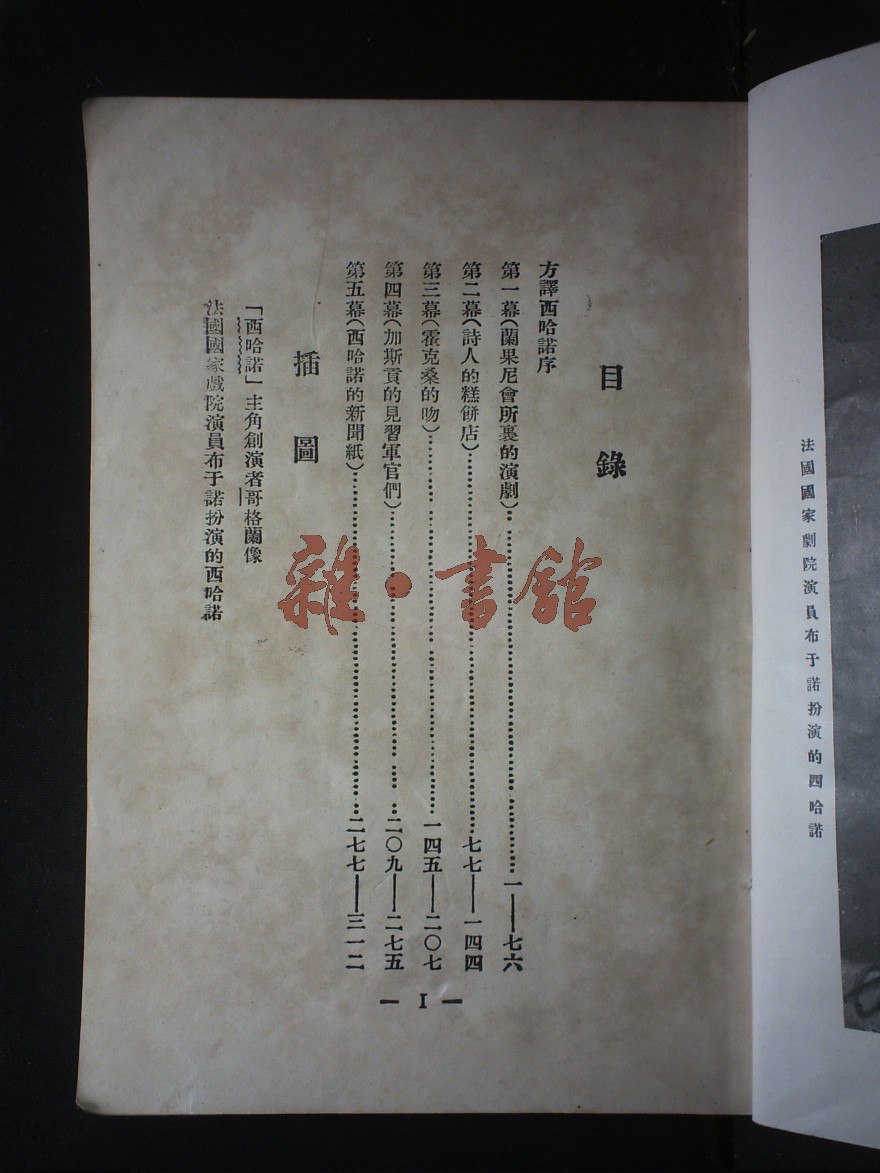 法國國家劇院演員布于諾扮演的四哈諾
目錄
方譯西哈諾序
第一幕(蘭果尼會所裏的演劇)…………一——七六
第二幕(詩人的糕餅店)…………七七——一四四
第三幕(霍克桑的吻)…………一四五——二〇七
第四幕(加斯貢的見習軍官們)…………二〇九——二七五
第五幕(西哈諾的新聞紙)…………二七七——三一二
插圖
「西哈諾」主角創演者哥格蘭像
法國國家戲院演員布于諾扮演的西哈諾
— I —
雜·書館